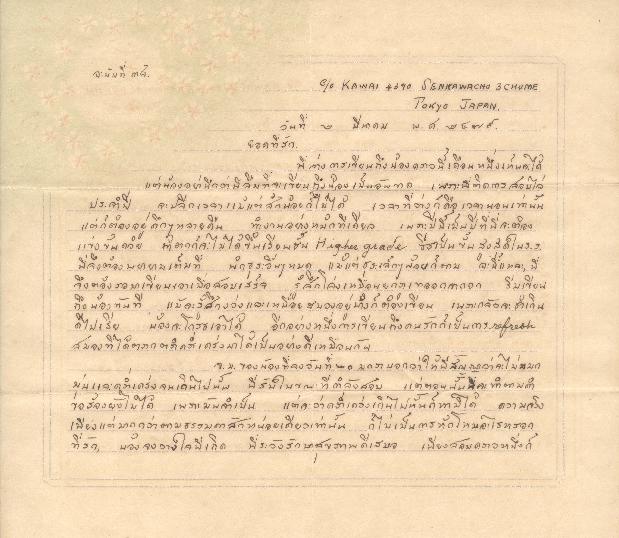 ฉะบับที่ ๓๘.
c/o KAWAI 4390 SENKAWACHO 3 CHOME
TOKYO JAPAN.
วันที่ ๒ มีนาคม พ.ศ. ๒๔๗๙
ยอดที่รัก.
พี่ห่างการเขียนถึงน้องคราวนี้เดือนหนึ่งเห็นจะได้
แต่น้องอย่านึกว่าพี่ลืมที่จะเขียนถึงน้องเป็นอันขาด เพราะพี่ติดการสอบไล่
ประจำปี จะปลีกเวลาแม้แต่สักน้อยก็ไม่ได้ เวลาที่ว่างก็คือเวลานอนเท่านั้น
แต่ก็ต้องอยู่ดึกๆหลายคืน ทำงานอย่างหนักทีเดียว เพราะปีนี้เป็นปีที่พี่จะต้อง
แข่งขันด้วย ถ้าตกก็จะไม่ได้ขึ้นเรียนชั้น Higher grade ซึ่งเป็นชั้นสูงสุดใน ร.ร.
พี่จึงต้องพยายามเต็มที่ พักธุระอื่นๆหมด แม้แต่ธุระเล็กๆน้อยก็ตาม ฉะนี้แหละ, พี่
จึงต้องรอมาเขียนเอาเมื่อสอบเสร็จ รู้สึกโล่งเหมือนยกภูเขาออกจากอก รีบเขียน
ถึงน้องทันที แม้จะ และเหนื่อย อยู่ ก็ต้องเขียน เพราะกลัวจะช้าเกิน
น้องจะโกรธเอาได้ อีกอย่างหนึ่งการเขียนถึงคนรักก็เป็นการ refresh
สมองที่ได้ตรากตรำคร่ำเคร่งมาได้เป็นอย่างดีเหมือนกัน
จ.ม. ของน้องที่ลงวันที่ ๒๐ มกรา บอกว่าให้พี่สัญญาว่าจะไม่หมก
มุ่นและคร่ำเคร่งจนเกินไปนั้น พี่รับในขณะที่กำลังสอบ แต่ตอนนั้นพี่จะทำตามคำ
ขอร้องยังไม่ได้ เพราะมันจำเป็น แต่จะว่าคร่ำเคร่งเกินไปนั้นก็หาไม่ได้ ความจริง
เพียงแต่มากกว่าตามธรรมดาสักหน่อยเดียวเท่านั้น ก็ไม่เป็นการหักโหมอะไรหรอก
ที่รัก, น้องจงวางใจพี่เถิด พี่ระวังรักษาสุขภาพดีเสมอ เพียงสอบคราวหนึ่งก็